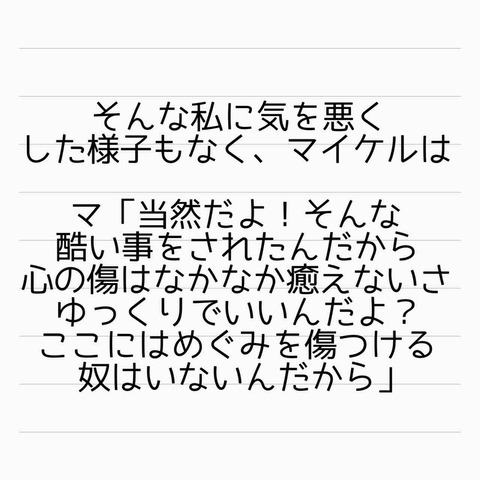 そんな私に気を悪く
した様子もなく、マイケルは
マ「当然だよ！そんな
酷い事をされたんだから
心の傷はなかなか癒えないさ
ゆっくりでいいんだよ？
ここにはめぐみを傷つける
奴はいないんだから」